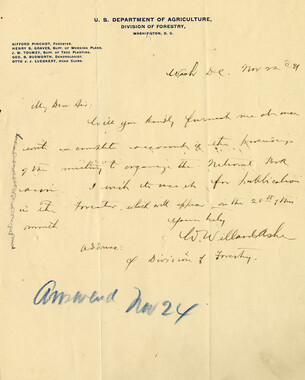 U. S. DEPARTMENT OF AGRICULTURE,
DIVISION OF FORESTRY,
WASHINGTON, D. C.
GIFFORD PINCHOT, FORESTER.
HENRY S. GRAVES, SUPT. OF WORKING PLANS.
J. W. TOUMEY, SUPT. OF TREE PLANTING.
GEO. B. SUDWORTH, DENDROLOGIST.
OTTO J. J. LUEBKERT, HEAD CLERK.
Wash D.C. Nov 22
My Dear Sir:
Will you kindly furnish me at once
with a complete account of the Proceedings
of the meeting to organize the National Park
I wish to use it for publication
in the Forester which will appear on the 20th of this
month
Yours truly
W. Willard Ashe
Address:
of Division of Forestry.
Answered Nov 24